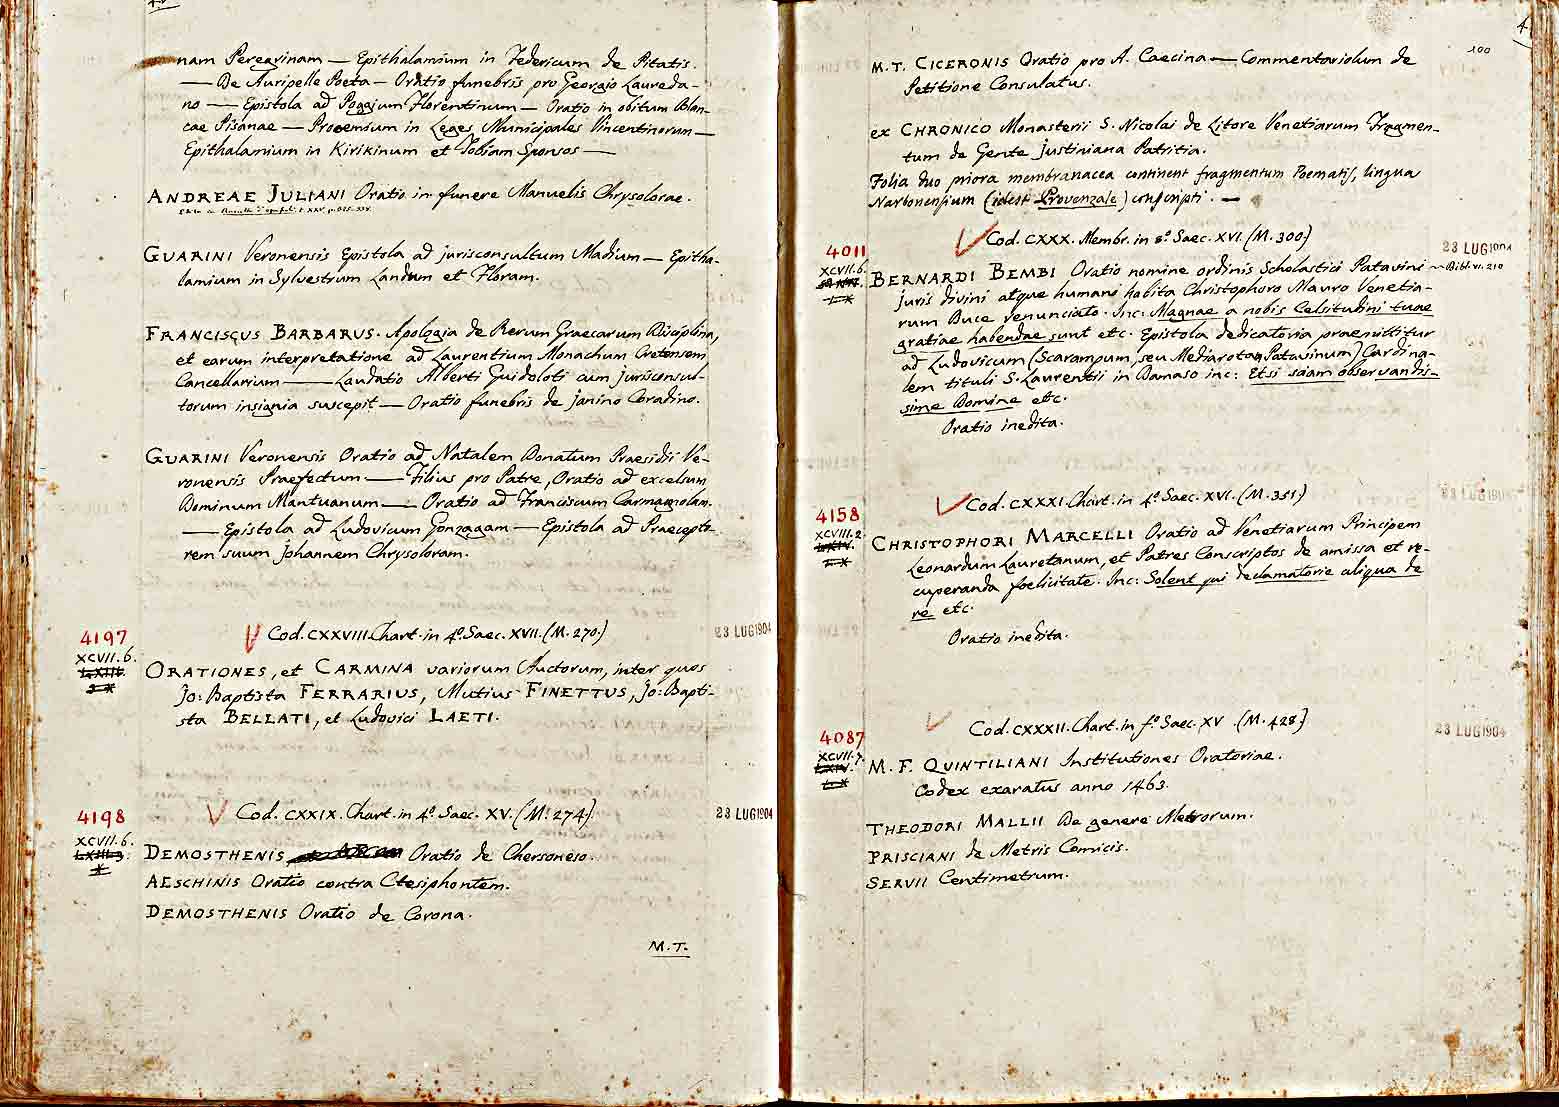 nam Peregrinam — Epithalamium in Federicum de Pitatis.
— De Auripelle Poeta — Oratio funebris pro Georgio Laureda-
no — Epistola ad Poggium Florentinum — Oratio in obitum Blan-
cae Pisanae — Prooemium in Leges Municipales Vincentinorum —
Epithalamium in Kirikinum et Tobiam Sponsos —
ANDREAE JULIANI Oratio in funere Manuelis Chrysolorae.
GUARINI Veronensis Epistola ad jurisconsultum Madium — Epitha-
lamium in Sylvestrum Landum et Floram.
FRANCISCUS BARBARUS. Apologia de Rerum Graecarum Disciplina,
et earum interpretatione ad Laurentium Monachum Cretensem
Cancellarium — Laudatio Alberti Guidoloti cum jurisconsul-
torum insignia suscepit — Oratio funebris de Janino Coradino.
GUARINI Veronensis Oratio ad Natalem Donatum Praesidii Ve-
ronensis Praefectum — Filius pro Patre, Oratio ad excelsum
Dominum Mantuanum — Oratio ad Franciscum Carmagnolam.
— Epistola ad Ludovicum Gonzagam — Epistola ad Praecepto-
rem suum Johannem Chrysoloram.
4197
XCVII.6.
Cod. CXXVIII. Chart. in 4º. Saec. XVII. (M. 270.)
23 LUG 1904
ORATIONES, et CARMINA variorum Auctorum, inter quos
Jo: Baptista FERRARIUS, Mutius FINETTUS, Jo: Bapti-
sta BELLATI, et Ludovici LAETI.
4198
XCVII.6.
Cod. CXXIX. Chart. in 4º. Saec. XV. (M. 274)
23 LUG 1904
DEMOSTHENIS Oratio de Chersoneso.
AESCHINIS Oratio contra Ctesiphontem.
DEMOSTHENIS Oratio de Corona.
M. T.
100
M. T. CICERONIS Oratio pro A. Caecina — Commentariolum de
Petitione Consulatus.
ex CHRONICO Monasterii S. Nicolai de Litore Venetiarum Fragmen-
tum de Gente Justiniana Patritia.
Folia duo priora membranacea continent fragmentum Poematis, lingua
Narbonensium (idest Provenzale) conscripti. —
4011
XCVII.6.
Cod. CXXX. Membr. in 8º. Saec. XVI. (M. 300)
23 LUG 1904
Bibl. VI. 210
BERNARDI BEMBI Oratio nomine ordinis Scholastici Patavini
juris divini atque humani habita Christophoro Mauro Venetia-
rum Duce renunciato. Inc: Magnae a nobis Celsitudini tuae
gratiae habendae sunt etc. Epistola dedicatoria praemittitur
ad Ludovicum (Scarampum, seu Mediarotam Patavinum) Cardina-
lem tituli S. Laurentii in Damaso inc: Etsi saam observandis-
sime Domine etc.
Oratio inedita.
4158
XCVIII.2.
Cod. CXXXI. Chart. in 4º. Saec. XVI. (M. 351)
CHRISTOPHORI MARCELLI Oratio ad Venetiarum Principem
Leonardum Lauretanum, et Patres Conscriptos de amissa et re-
cuperanda foelicitate. Inc: Solent qui declamatorie aliqua de
re etc.
Oratio inedita.
4087
XCVII.7.
Cod. CXXXII. Chart. in fº. Saec. XV. (M. 428)
23 LUG 1904
M. F. QUINTILIANI Institutiones Oratoriae.
Codex exaratus anno 1463.
THEODORI MALLII De genere Metrorum.
PRISCIANI de Metris Comicis.
SERVII Centimetrum.